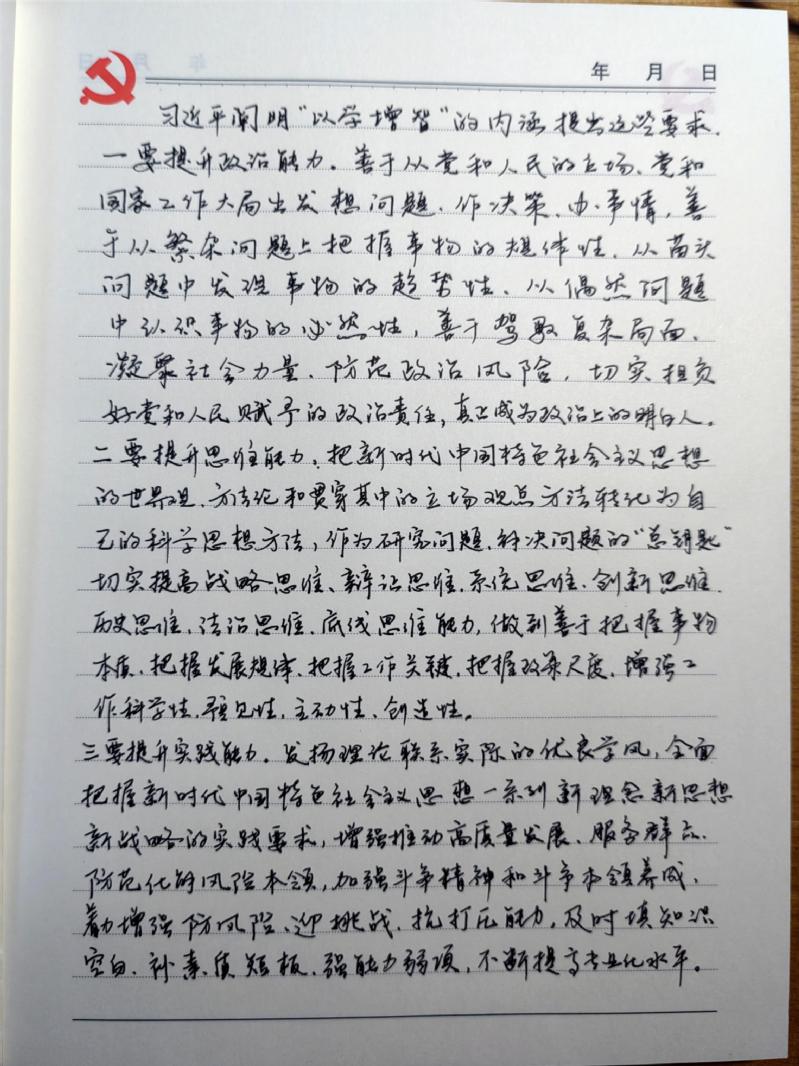 年 月 日
习近平阐明“以学增智”的内涵提出这些要求.
一要提升政治能力。善于从党和人民的立场、党和
国家工作大局出发想问题、作决策、办事情，善
于从繁杂问题上把握事物的规律性、从苗头
问题中发现事物的趋势性、从偶然问题
中认识事物的必然性，善于驾驭复杂局面、
凝聚社会力量、防范政治风险，切实担负
好党和人民赋予的政治责任，真正成为政治上的明白人。
二要提升思维能力。把新时代中国特色社会主义思想
的世界观、方法论和贯穿其中的立场观点方法转化为自
己的科学思想方法，作为研究问题、解决问题的“总钥匙”
切实提高战略思维、辩证思维、系统思维、创新思维、
历史思维、法治思维、底线思维能力，做到善于把握事物
本质、把握发展规律、把握工作关键、把握政策尺度、增强工
作科学性、预见性、主动性、创造性。
三要提升实践能力。发扬理论联系实际的优良学风，全面
把握新时代中国特色社会主义思想一系列新理念新思想
新战略的实践要求，增强推动高质量发展、服务群众、
防范化解风险本领，加强斗争精神和斗争本领养成，
着力增强防风险、迎挑战、抗打压能力，及时填知识
空白、补素质短板、强能力弱项，不断提高专业化水平。